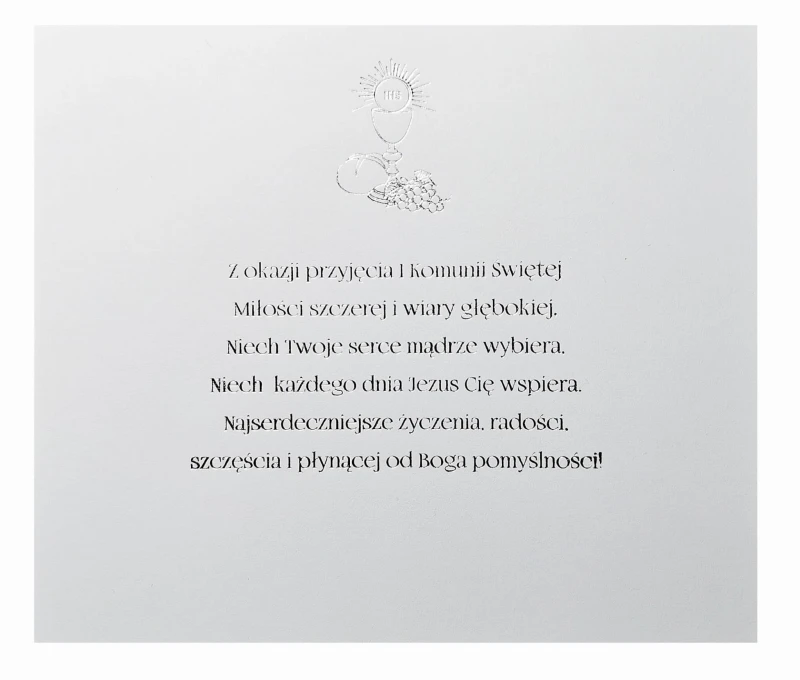 IHS
Z okazji przyjęcia I Komunii Świętej
Miłości szczerej i wiary głębokiej,
Niech Twoje serce mądrze wybiera,
Niech każdego dnia Jezus Cię wspiera.
Najserdeczniejsze życzenia, radości,
szczęścia i płynącej od Boga pomyślności!